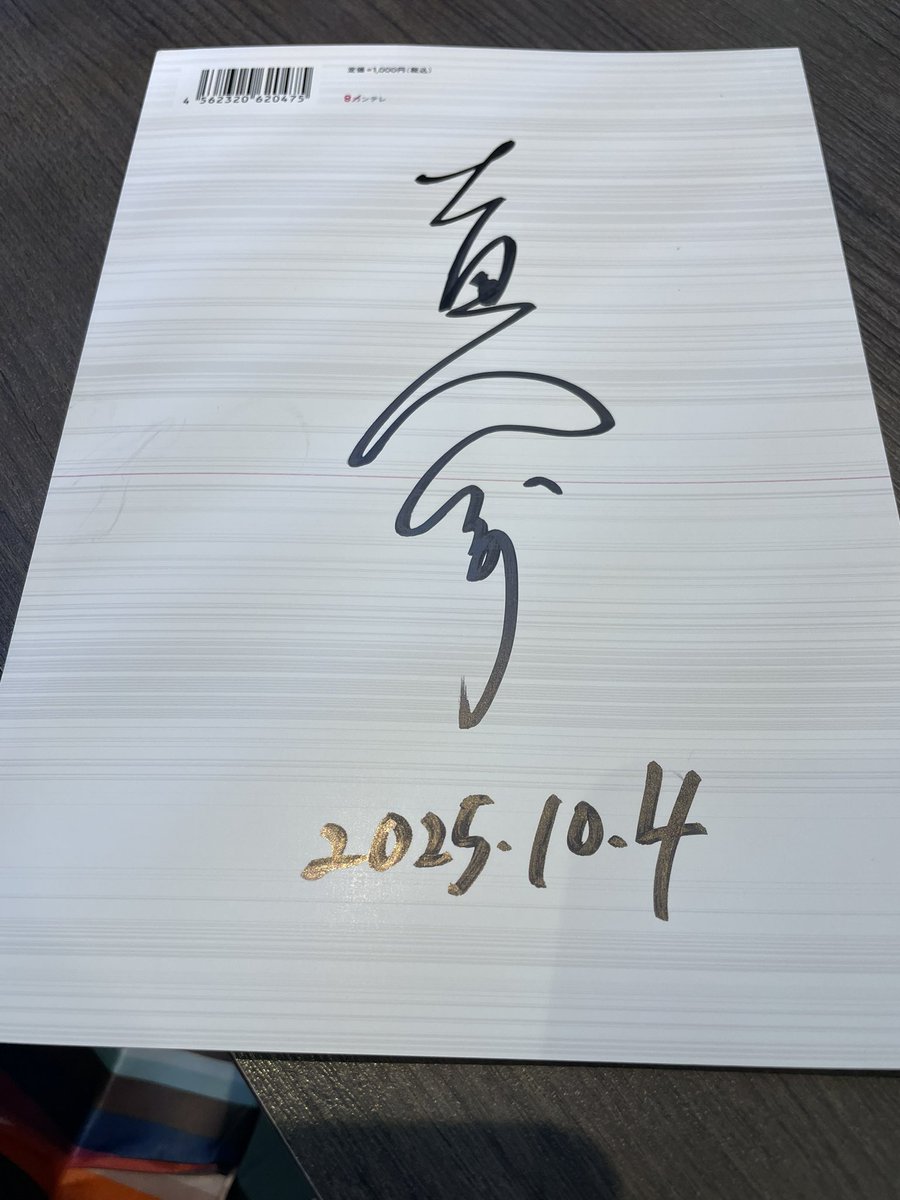 4 562320 620475
定価=1,000円(税込)
日テレ
2025.10.4